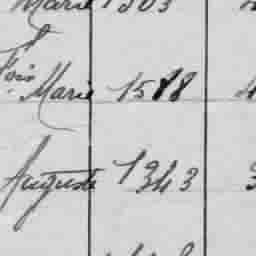 Marie 1303
Fois Marie 1588 4
Auguste 1343 3